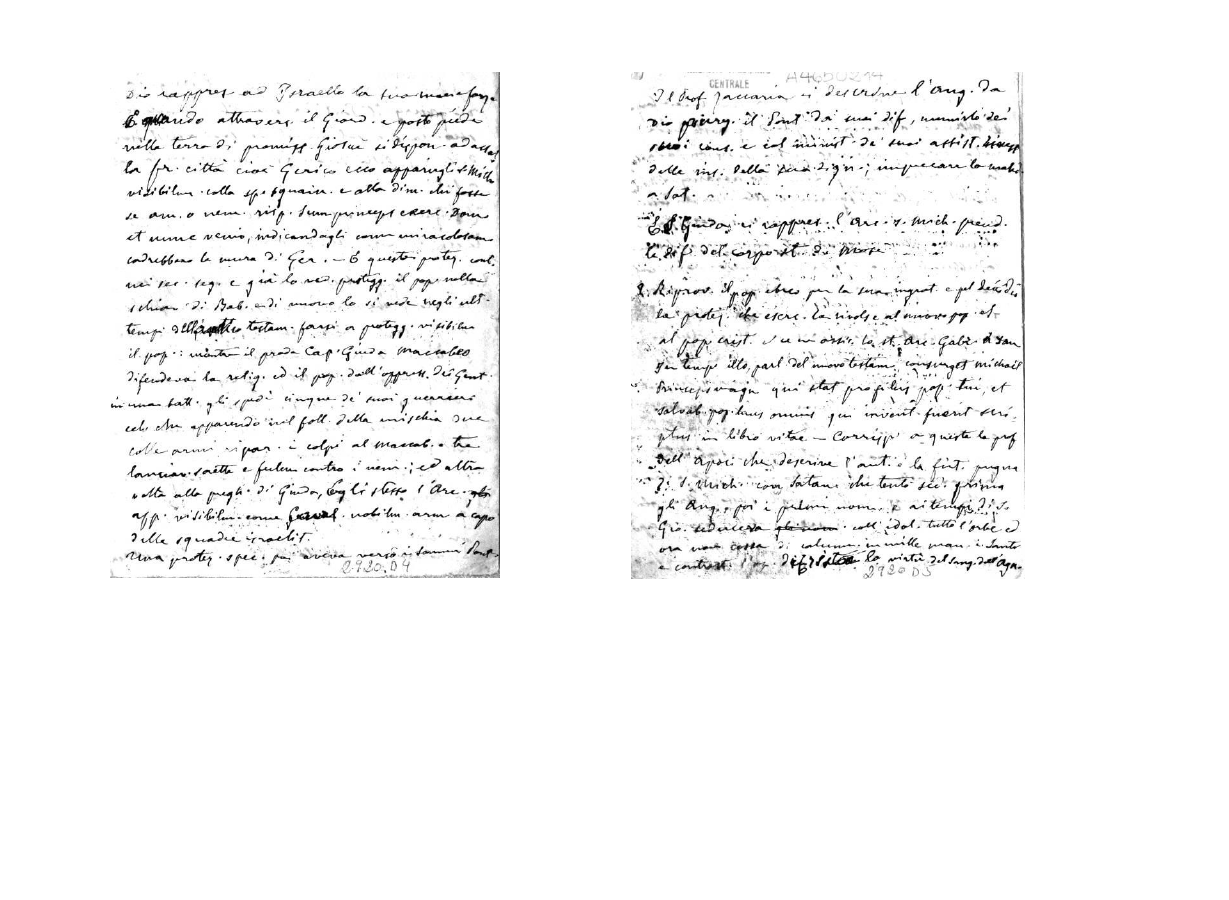 Dio rappres. ad Israello la sua
E quando attravers. il Giord. e posto piede
nella terra di promiss. Giosuè si dispon. ad
la fr. città cioè Gerico ecco
visibilm. colla sp. sguain. e alla dim. chi fosse
se am. o nem. risp. Sum princeps exerc. Dom.
et nunc venio, indicandogli come miracolosam.
cadrebbero le mura di Ger. — E questa protez. cont.
nei sec. seg. e già lo ved. protegg. il pop. nella
schiav. di Bab. e di nuovo lo si vede negli ult.
tempi testam. farsi a protegg. visibilm.
il pop.: mentre il prode Cap. Giuda Maccabeo
difendeva la relig. ed il pop. dall'oppress. dei Gent.
in una batt. gli spedì cinque de' suoi guerrieri
cel. che apparendo nel foll. della mischia due
colle armi ripar. i colpi al Maccab. e tre
lancian. saette e fulm. contro i nem.; ed altra
volta alla pregh. di Giuda, Egli stesso l'Arc. gli
app. visibilm. come nobilm. arm. a capo
delle squadre israelit.
Una protez. spec. poi aveva verso i Sommi Pont.
2920.D4
CENTRALE
A4650214
Il Prof. Zaccaria ci descrive l'Ang. da
Dio il Pont. da' suoi dif., munirlo dei
suoi cons. e col minist. de' suoi assist.
delle ins. della sua dign.; imprecare
a Sat.
E S. Giuda ci rappres. l'Arc. S. Mich. prend.
la dif. del corpo di Mosè
2. Riprov. il pop. ebreo per la sua ingrat. e pel
la protez. che eserc. la rivolse al nuovo pop. el.
al pop. crist. lo st. Arc. Gabr. a Dan.
In temp. illo, parl. del nuovo testam., consurget Michael
Princeps magn. qui stat pro filiis pop. tui, et
salvab. pop. tuus omnis qui invent. fuerit scri-
ptus in libro vitae — Corrisp. a queste la prof.
dell'Apoc. che descrive l'ant. e la fut. pugna
di S. Mich. con Satana che tentò sed. prima
gli Ang. poi i primi uom. e ai tempi di S.
Gio. seduceva coll'idol. tutto l'orbe ed
ora non cessa di calunn. in mille man. i Santi
e contrast. la virtù del sang. dell'Agn.
2920 D5